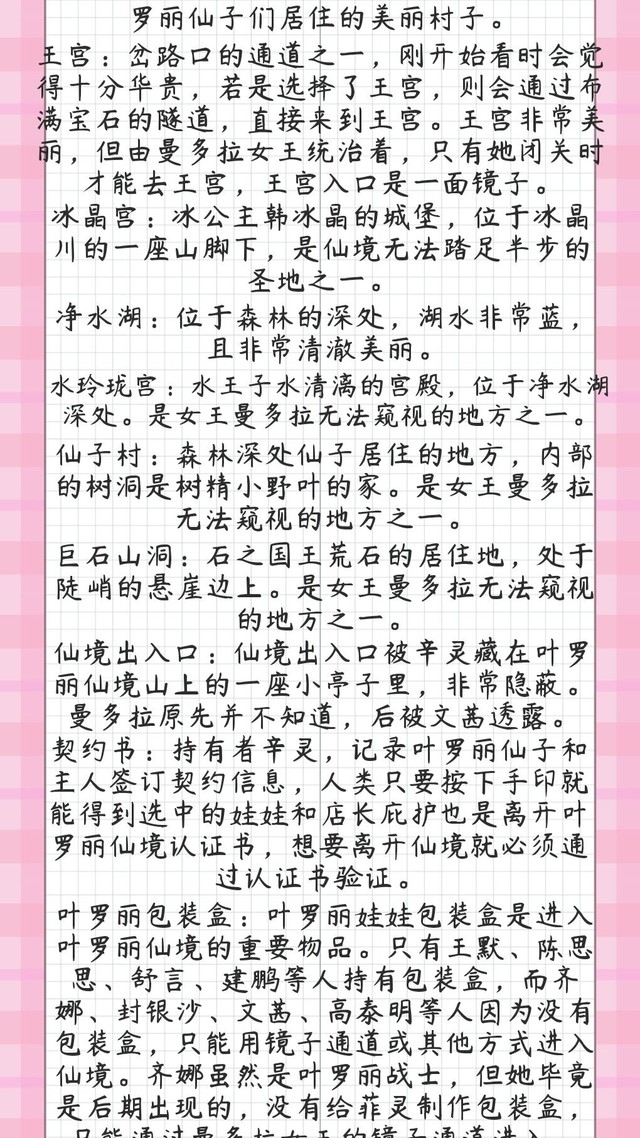 罗丽仙子们居住的美丽村子。
王宫：岔路口的通道之一，刚开始看时会觉
得十分华贵，若是选择了王宫，则会通过布
满宝石的隧道，直接来到王宫。王宫非常美
丽，但由曼多拉女王统治着，只有她闭关时
才能去王宫，王宫入口是一面镜子。
冰晶宫：冰公主韩冰晶的城堡，位于冰晶
川的一座山脚下，是仙境无法踏足半步的
圣地之一。
净水湖：位于森林的深处，湖水非常蓝，
且非常清澈美丽。
水玲珑宫：水王子水清漓的宫殿，位于净水湖
深处。是女王曼多拉无法窥视的地方之一。
仙子村：森林深处仙子居住的地方，内部
的树洞是树精小野叶的家。是女王曼多拉
无法窥视的地方之一。
巨石山洞：石之国王荒石的居住地，处于
陡峭的悬崖边上。是女王曼多拉无法窥视
的地方之一。
仙境出入口：仙境出入口被辛灵藏在叶罗
丽仙境山上的一座小亭子里，非常隐蔽。
曼多拉原先并不知道，后被文茜透露。
契约书：持有者辛灵，记录叶罗丽仙子和
主人签订契约信息，人类只要按下手印就
能得到选中的娃娃和店长庇护也是离开叶
罗丽仙境认证书，想要离开仙境就必须通
过认证书验证。
叶罗丽包装盒：叶罗丽娃娃包装盒是进入
叶罗丽仙境的重要物品。只有王默、陈思
思、舒言、建鹏等人持有包装盒，而齐
娜、封银沙、文茜、高泰明等人因为没有
包装盒，只能用镜子通道或其他方式进入
仙境。齐娜虽然是叶罗丽战士，但她毕竟
是后期出现的，没有给菲灵制作包装盒，
只能通过曼多拉女王的镜子通道进入